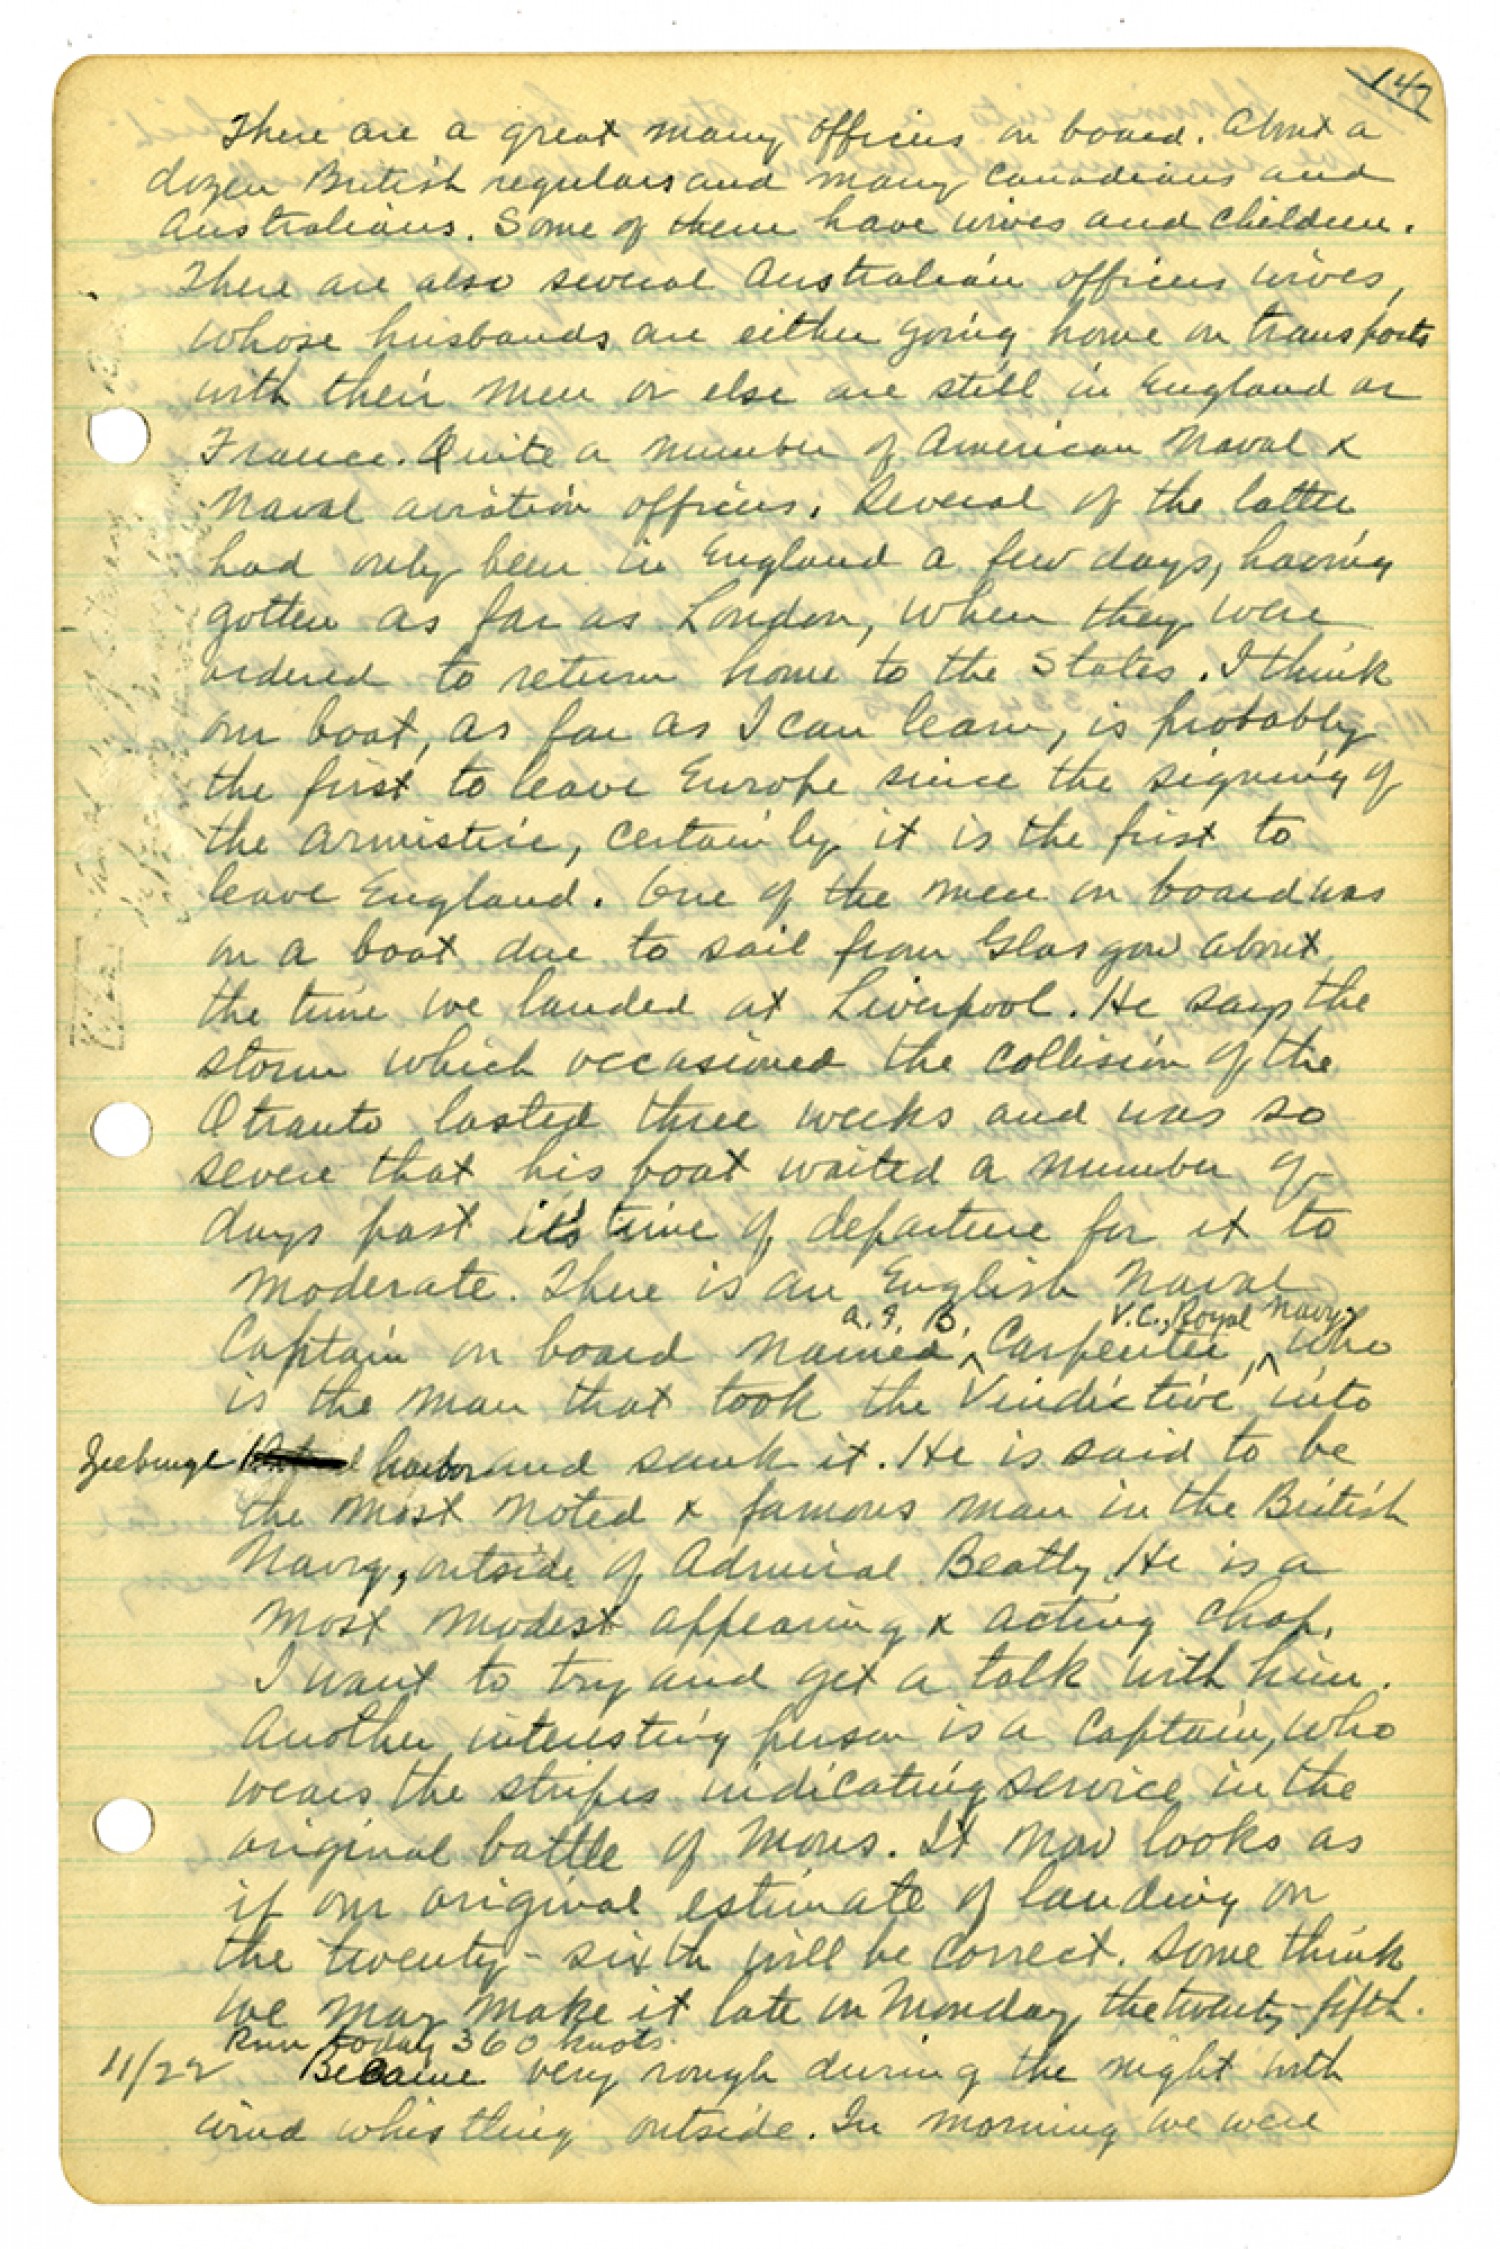 147
There are a great many officers on board. About a
dozen British regulars and many Canadians and
Australians. Some of them have wives and children.
There are also several Australian officers wives,
whose husbands are either going home on transports
with their men or else are still in England or
France. Quite a number of American Naval &
Naval aviation officers. Several of the latter
had only been in England a few days, having
gotten as far as London, when they were
ordered to return home to the States. I think
our boat, as far as I can learn, is probably
the first to leave Europe since the signing of
the armistice, certainly it is the first to
leave England. One of the men on board was
on a boat due to sail from Glasgow about
the time we landed at Liverpool. He says the
storm which occasioned the collision of the
Otranto lasted three weeks and was so
severe that his boat waited a number of
days past it's time of departure for it to
moderate. There is an English Naval
Captain on board named, A.F.B. Carpenter, V.C., Royal Navy, who
is the man that took the "Vindictive" into
Zeebruge harbor and sank it. He is said to be
the most noted & famous man in the British
Navy, outside of Admiral Beatty. He is a
most modest appearing & acting chap.
I want to try and get a talk with him.
Another interesting person is a Captain, who
wears the stripes indicating service in the
original battle of Mons. It now looks as
if our original estimate of landing on
the twenty-sixth will be correct. Some think
we may make it late on Monday the twenty-fifth.
Run today 360 knots.
11/22 Became very rough during the night with
wind whistling outside. In morning we were